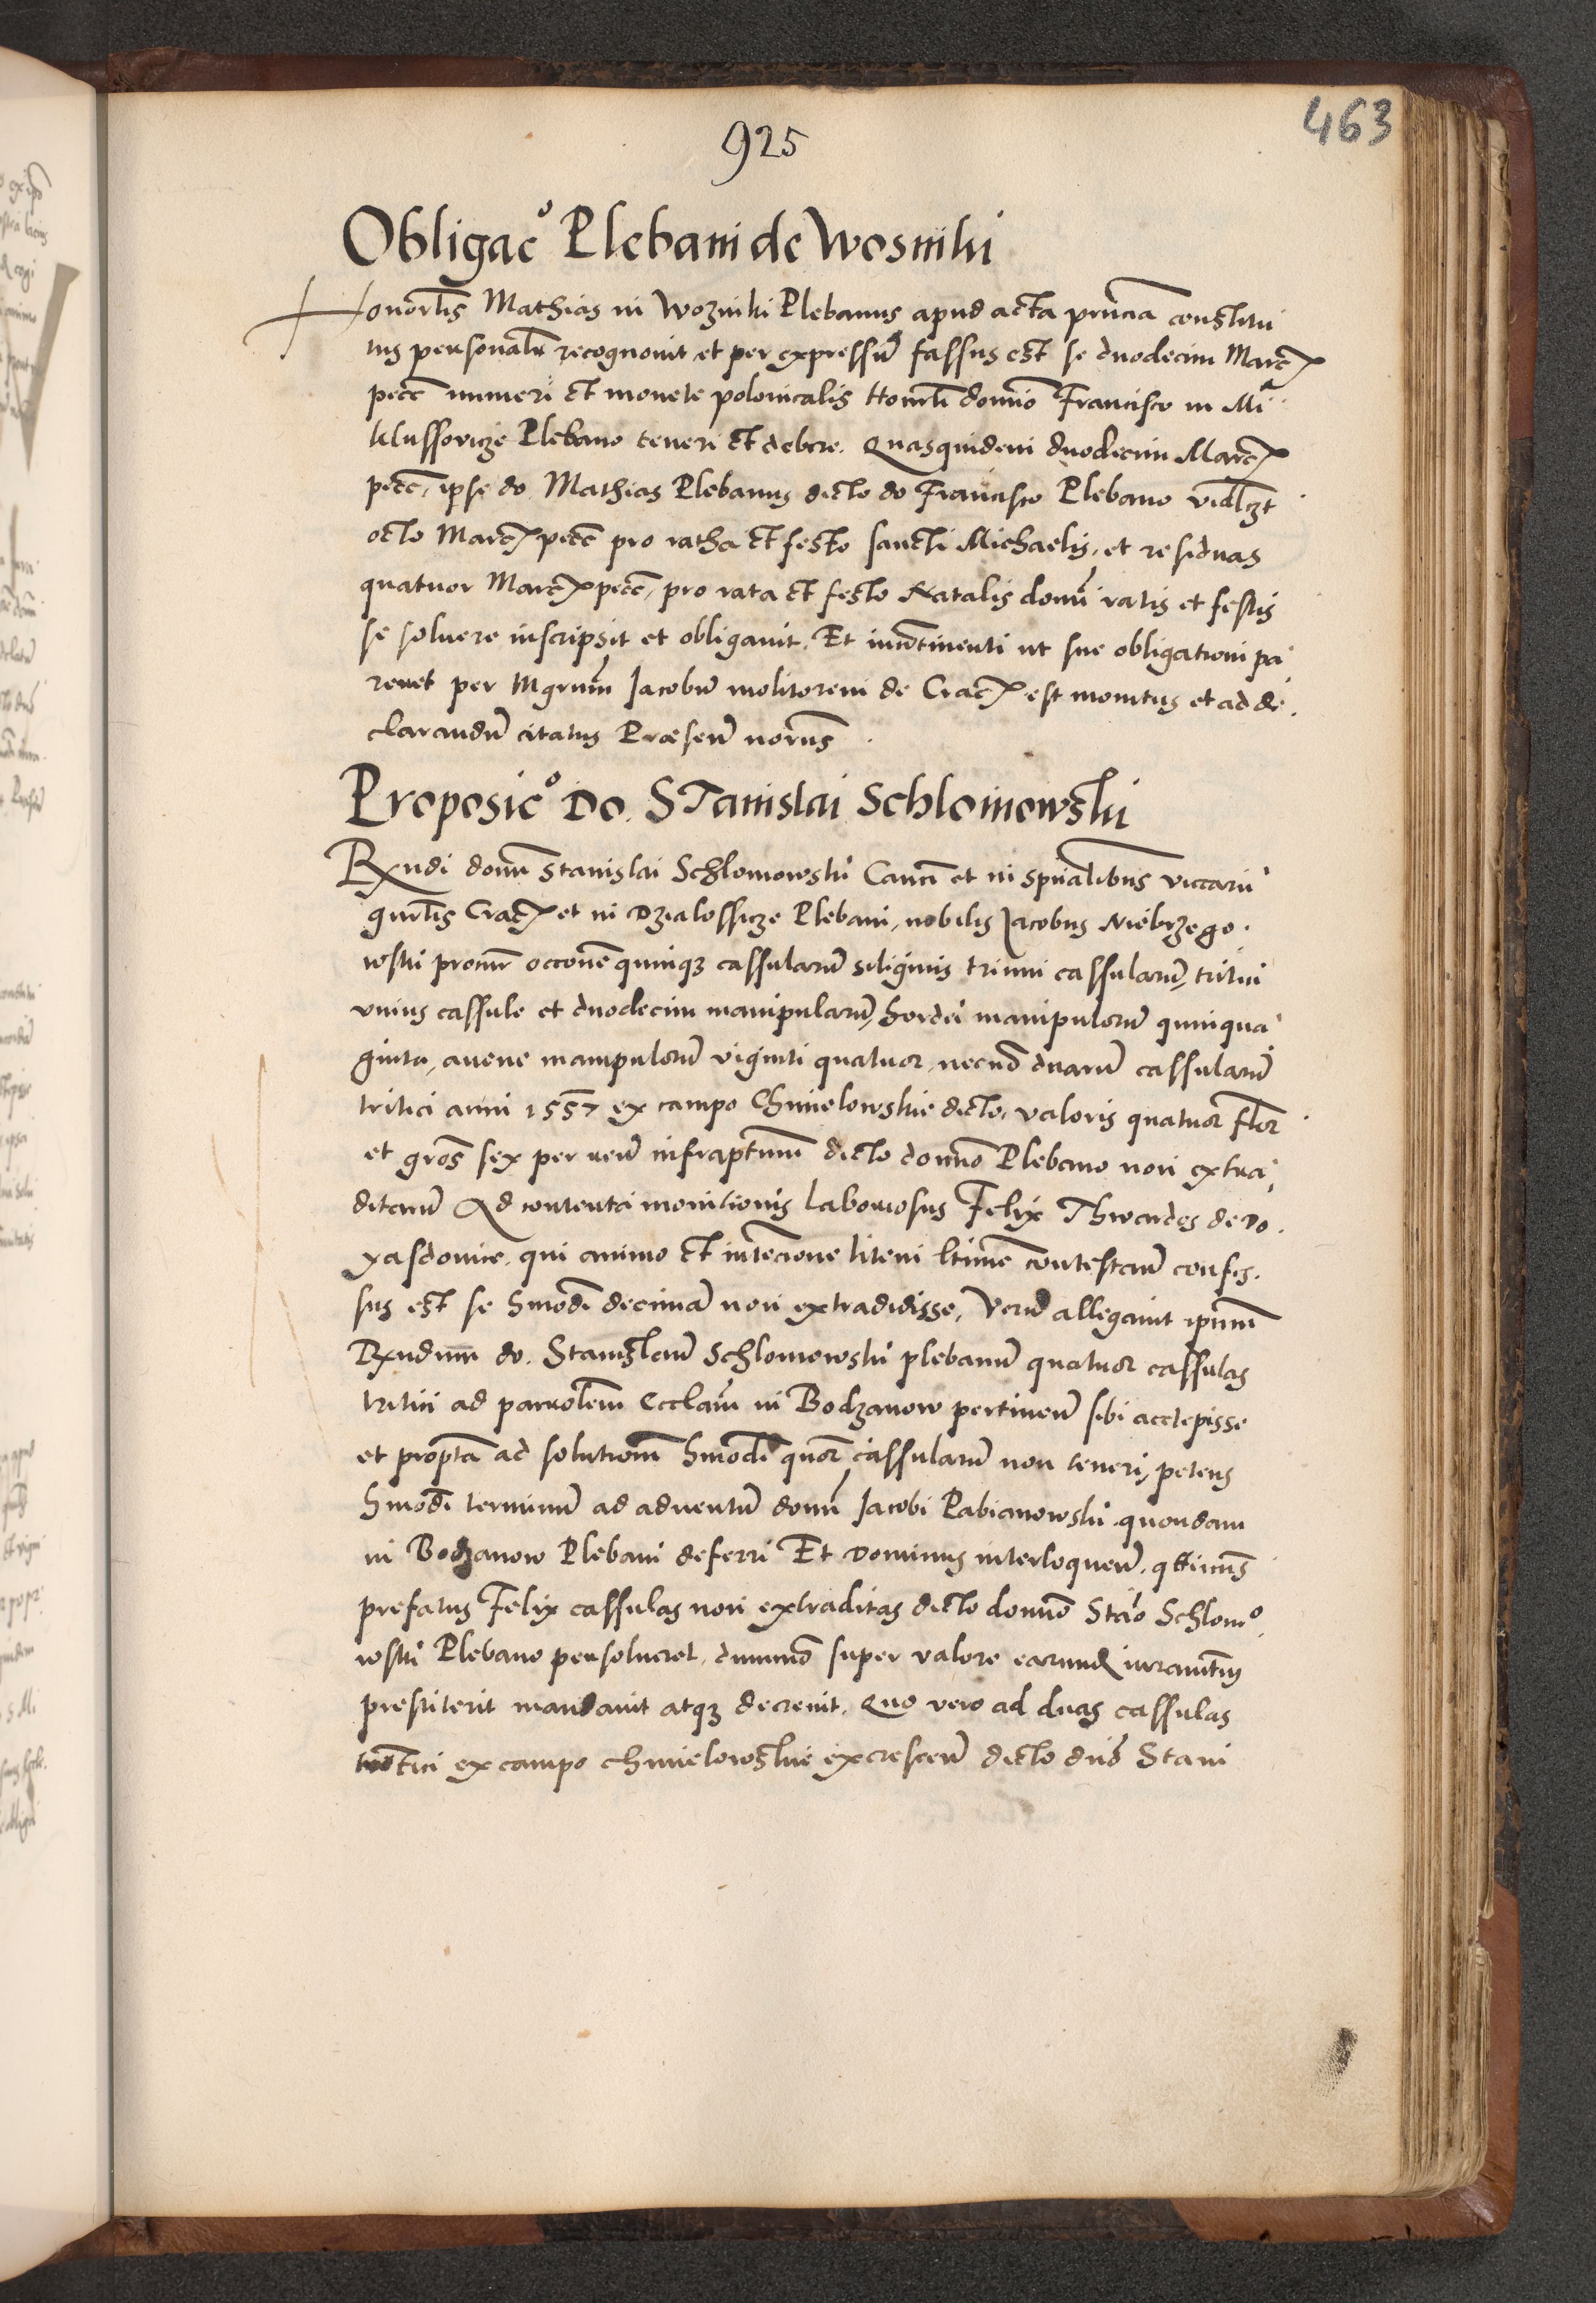 463
925
Obligac̊ Plebani de Wosniki
Honorłis Mathias in Wozniki Plebanus apud acta prn̄cia constitu
tus personalr̄ recognovit et per expressū fassus est se duodecim Marc̄
pecc̄ numeri et monete polonicalis Honorli domino Francisco in Mi
klussovicze Plebano teneri et debere. Quasquidem duodecim Marc̄
pecc̄, ipse do. Mathias Plebanus dicto do Francisco Plebano vidlzt
octo Marc̄ pecc̄ pro ratha et festo sancti Michaelis, et residuas
quatuor Marc̄ pecc̄, pro rata et festo Natalis domī ratis et festis
se soluere inscripsit et obligauit. Et incōtinenti ut sue obligationi pa
reret per Mgrum̄ Jacobū molitorem de Crac̄ est monitus et ad de
clarandū citatus Præsen̄ norus̄
Proposic̊ Do. Stanislai Schlomowski
Rxndi domī Stanislai Schlomowski Canci et in spūalibus viccarii
gnrl̄is Crac̄ et in Dzialossicze Plebani, nobilis Jacobus Niebrzego
wski procur occone quinq3 cassularū siliginis trium cassularū, tritici
vnius cassule et duodecim manipularū, hordei manipulorū quinqua
ginta, auene manipulorū viginti quatuor, necnō duarū cassularū
tritici anni 1557 ex campo Chmielowskie dicto, valoris quatuor flor
et gros̄ sex per reū infraptum̄ dicto domino Plebano non extra
ditarū Ad contenta monitionis laboriosus Felix Thwardes de Do
xasdonice, qui animo et intēcione litem ltime contestan̄ confes
sus est se hmōdi decimā non extradidisse, Verū allegauit ipm̄
Rxndum do. Stanislaū Schlomowski plebanū quatuor cassulas
tritici ad parrolem Ecclam̄ in Bodzanow pertinen̄ sibi accepisse
et propt̄a ad solutionem hmōdi quor cassularū non teneri, petens
hmōdi terminū ad aduentū domī Jacobi Pabianowski quondam
in Bodzanow Plebani deferri Et Dominus interloquen̄. qtinus̄
prefatus Felix cassulas non extraditas dicto domino Stāo Schlomo
wski Plebano persolueret, dummō super valore earund iuramt̄um
prestiterit mandauit atq3 decreuit. Quo vero ad duas cassulas
tritici ex campo chmielowskie excrescen̄ dicto dn̄o Stani